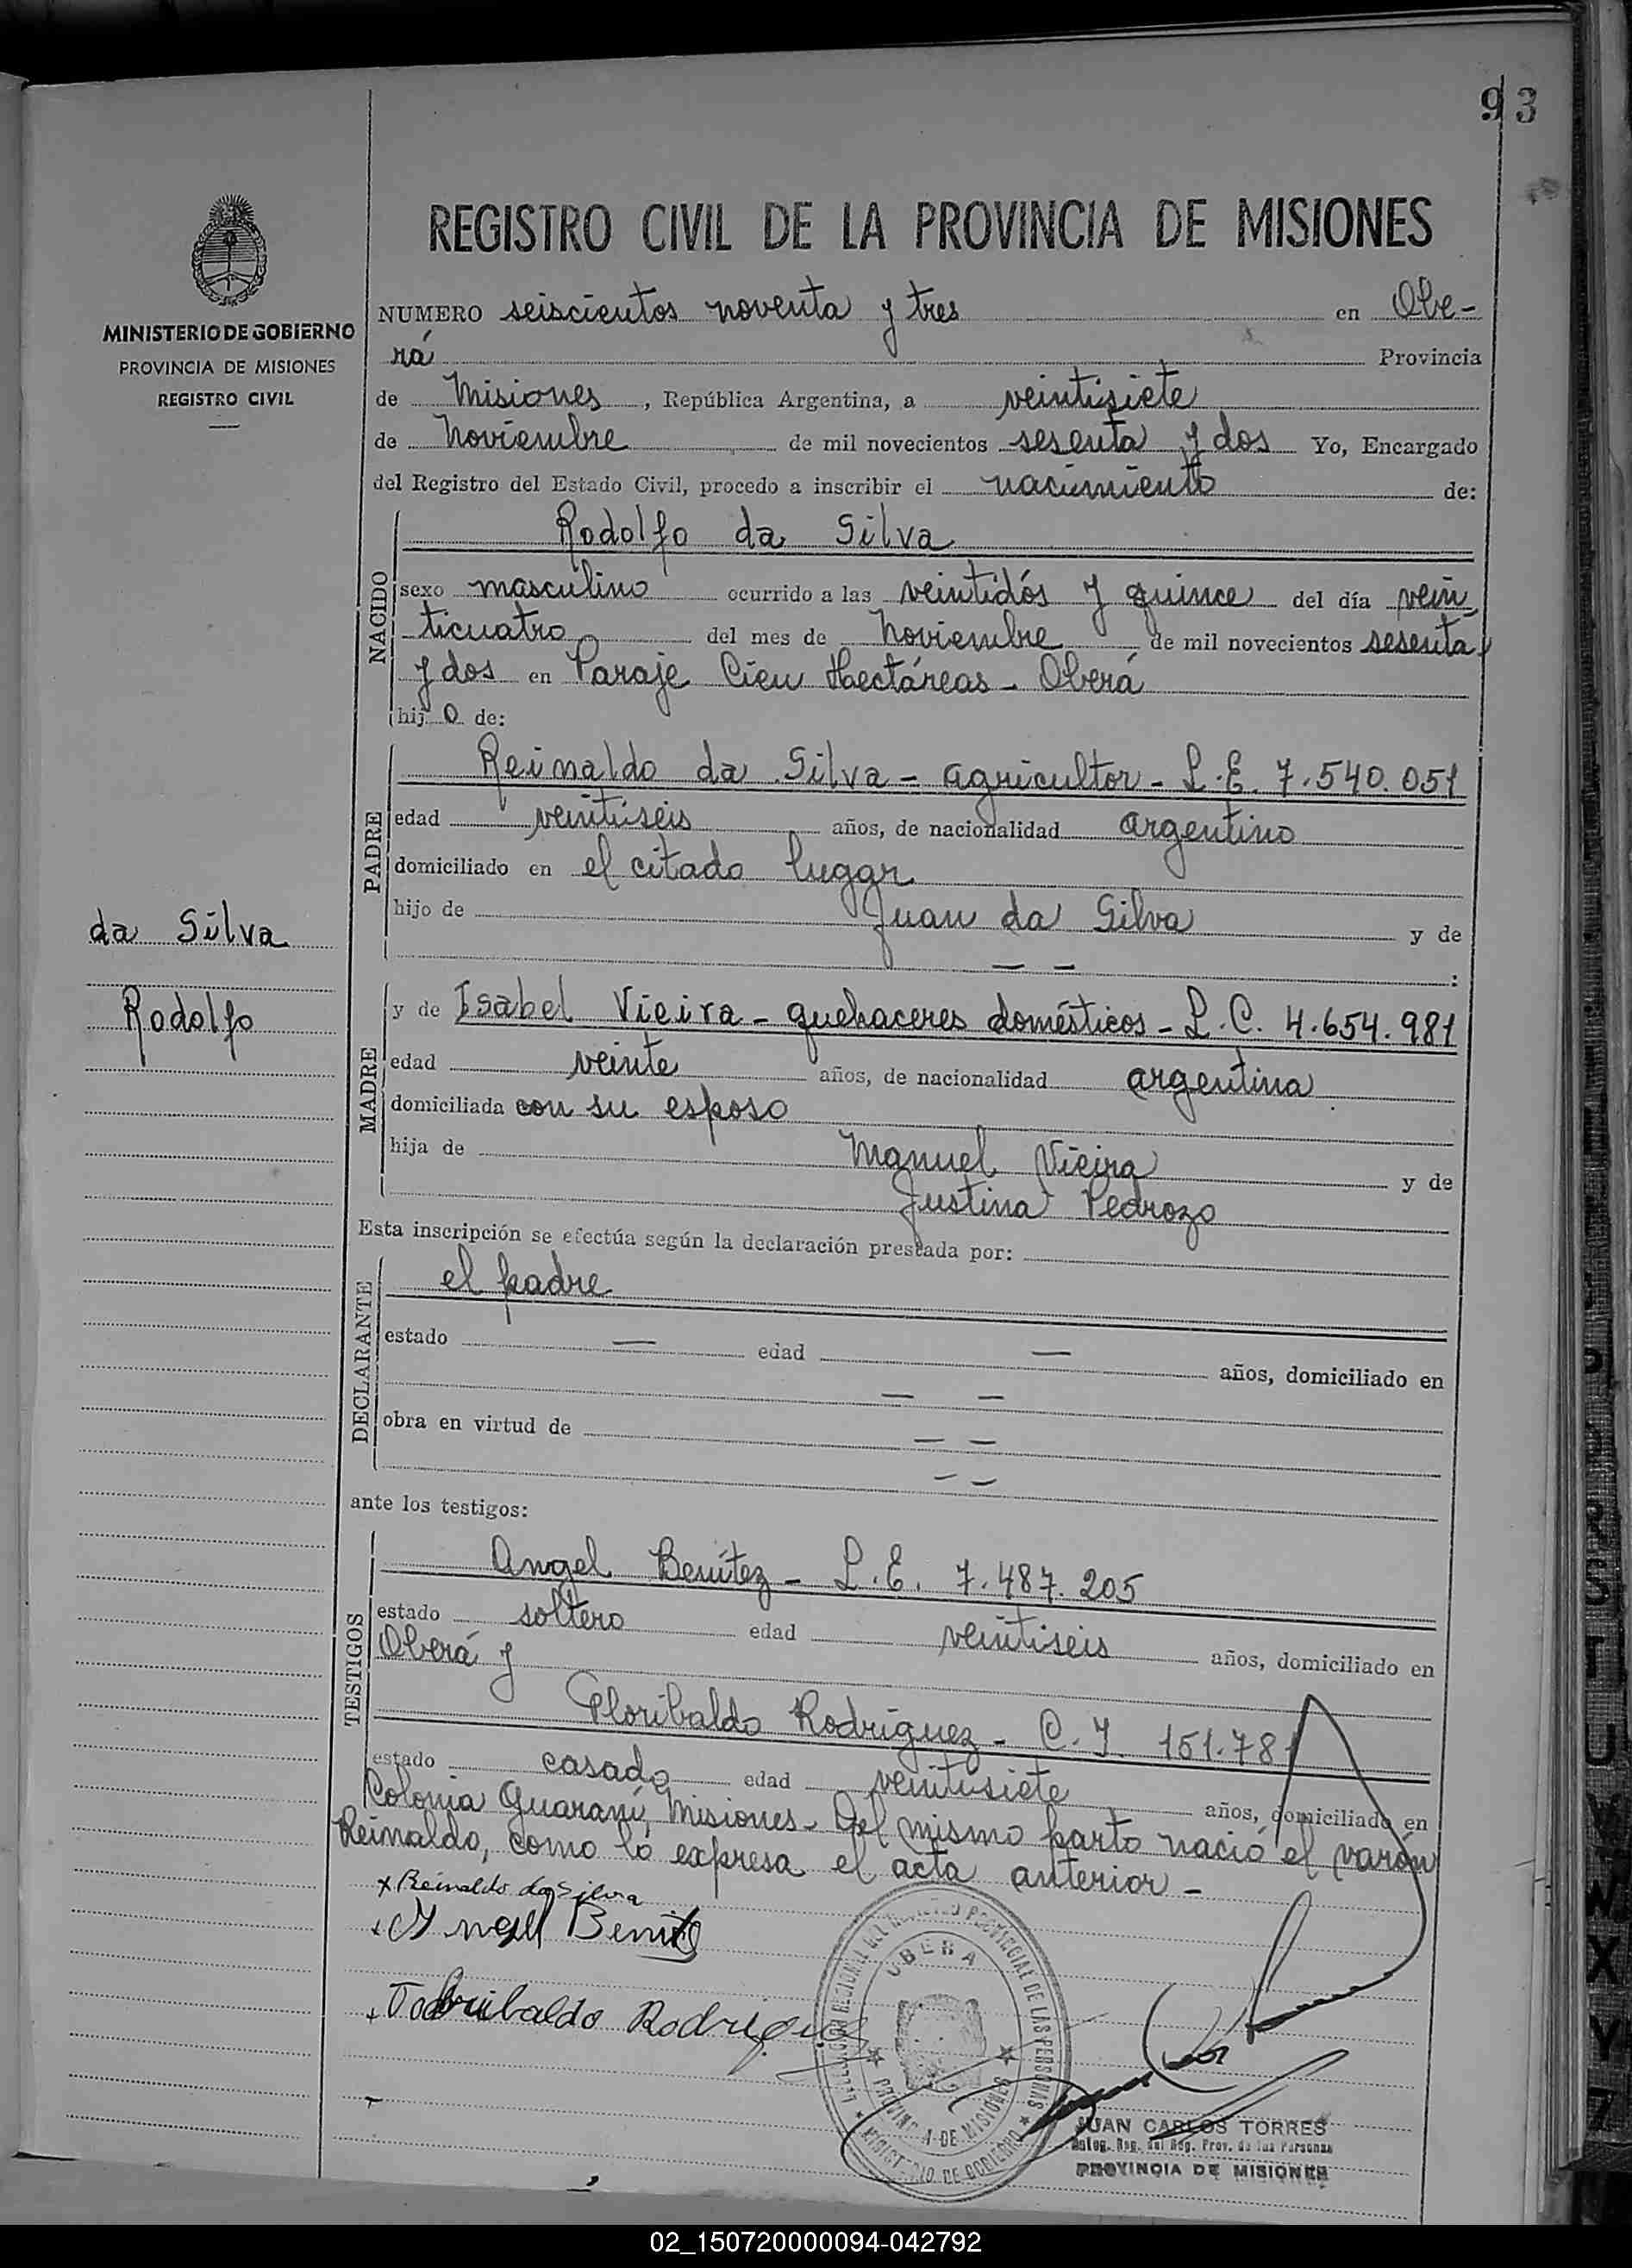 93
REGISTRO CIVIL DE LA PROVINCIA DE MISIONES
MINISTERIO DE GOBIERNO
PROVINCIA DE MISIONES
REGISTRO CIVIL
NUMERO seiscientos noventa y tres en Obe-
rá Provincia
de Misiones, República Argentina, a veintisiete
de Noviembre de mil novecientos sesenta y dos Yo, Encargado
del Registro del Estado Civil, procedo a inscribir el nacimiento de:
NACIDO
Rodolfo da Silva
sexo masculino ocurrido a las veintidós y quince del día vein-
ticuatro del mes de Noviembre de mil novecientos sesenta
y dos en Paraje Cien Hectáreas - Oberá
hijo de:
PADRE
Reinaldo da Silva - agricultor - L.E. 7.540.051
edad veintiseis años, de nacionalidad argentino
domiciliado en el citado lugar
hijo de Juan da Silva y de
— — :
da Silva
Rodolfo
MADRE
y de Isabel Vieira - quehaceres domésticos - L.C. 4.654.981
edad veinte años, de nacionalidad argentina
domiciliada con su esposo
hija de Manuel Vieira y de
Justina Pedrozo
Esta inscripción se efectúa según la declaración prestada por:
DECLARANTE
el padre
estado — edad — años, domiciliado en
— —
obra en virtud de — —
— —
ante los testigos:
TESTIGOS
Angel Benítez - L.E. 7.487.205
estado soltero edad veintiseis años, domiciliado en
Oberá y
Floribaldo Rodríguez - C.I. 151.781
estado casado edad veintisiete años, domiciliado en
Colonia Guaraní, Misiones - Del mismo parto nació el varón
Reinaldo, como lo expresa el acta anterior -
x Reinaldo da Silva
x Angel Benite
Rodrigues
OBERA
PROVINCIA DE MISIONES
MINISTERIO DE GOBIERNO
JUAN CARLOS TORRES
Deleg. Reg. del Reg. Prov. de las Personas
PROVINCIA DE MISIONES
S
T
U
V
W
X
Y
Z
02_150720000094-042792